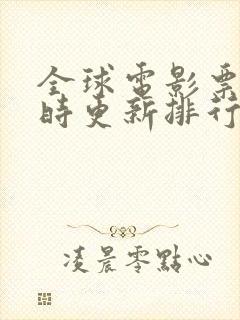 全球電影票
時更新排行
凌晨零點心